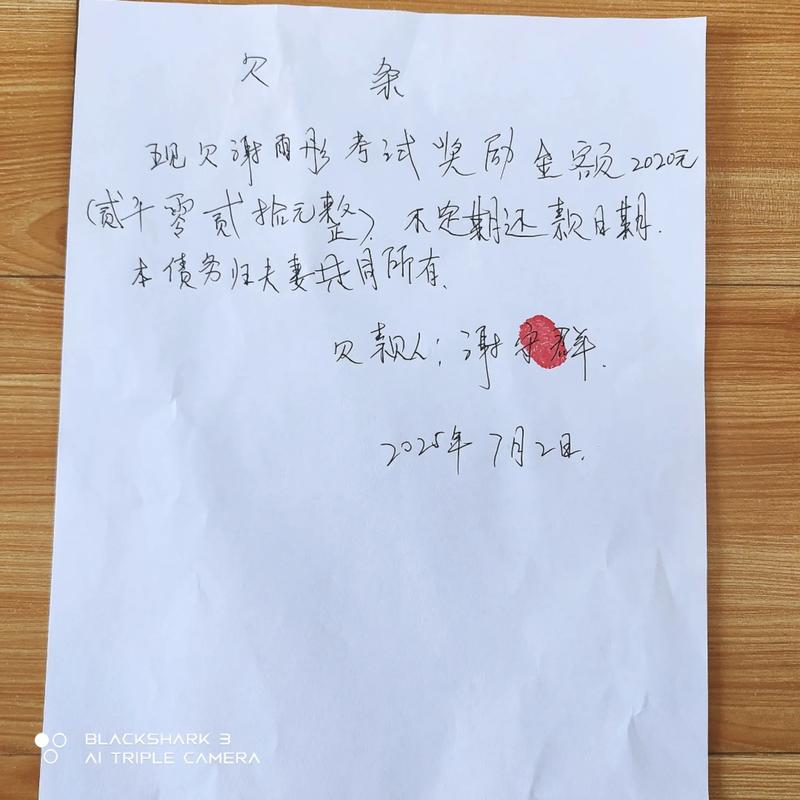 欠 条
现欠谢雨彤考试奖励金额2020元
(贰千零贰拾元整). 不定期还款日期.
本债务归夫妻共同所有.
欠款人: 谢宗群.
2025年7月2日.
BLACKSHARK 3
AI TRIPLE CAMERA